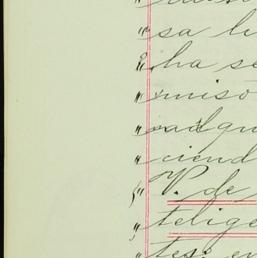 " sa lu
" ha se
" miso
" adqu
" ciend
" V. de
" telige
" tes; en